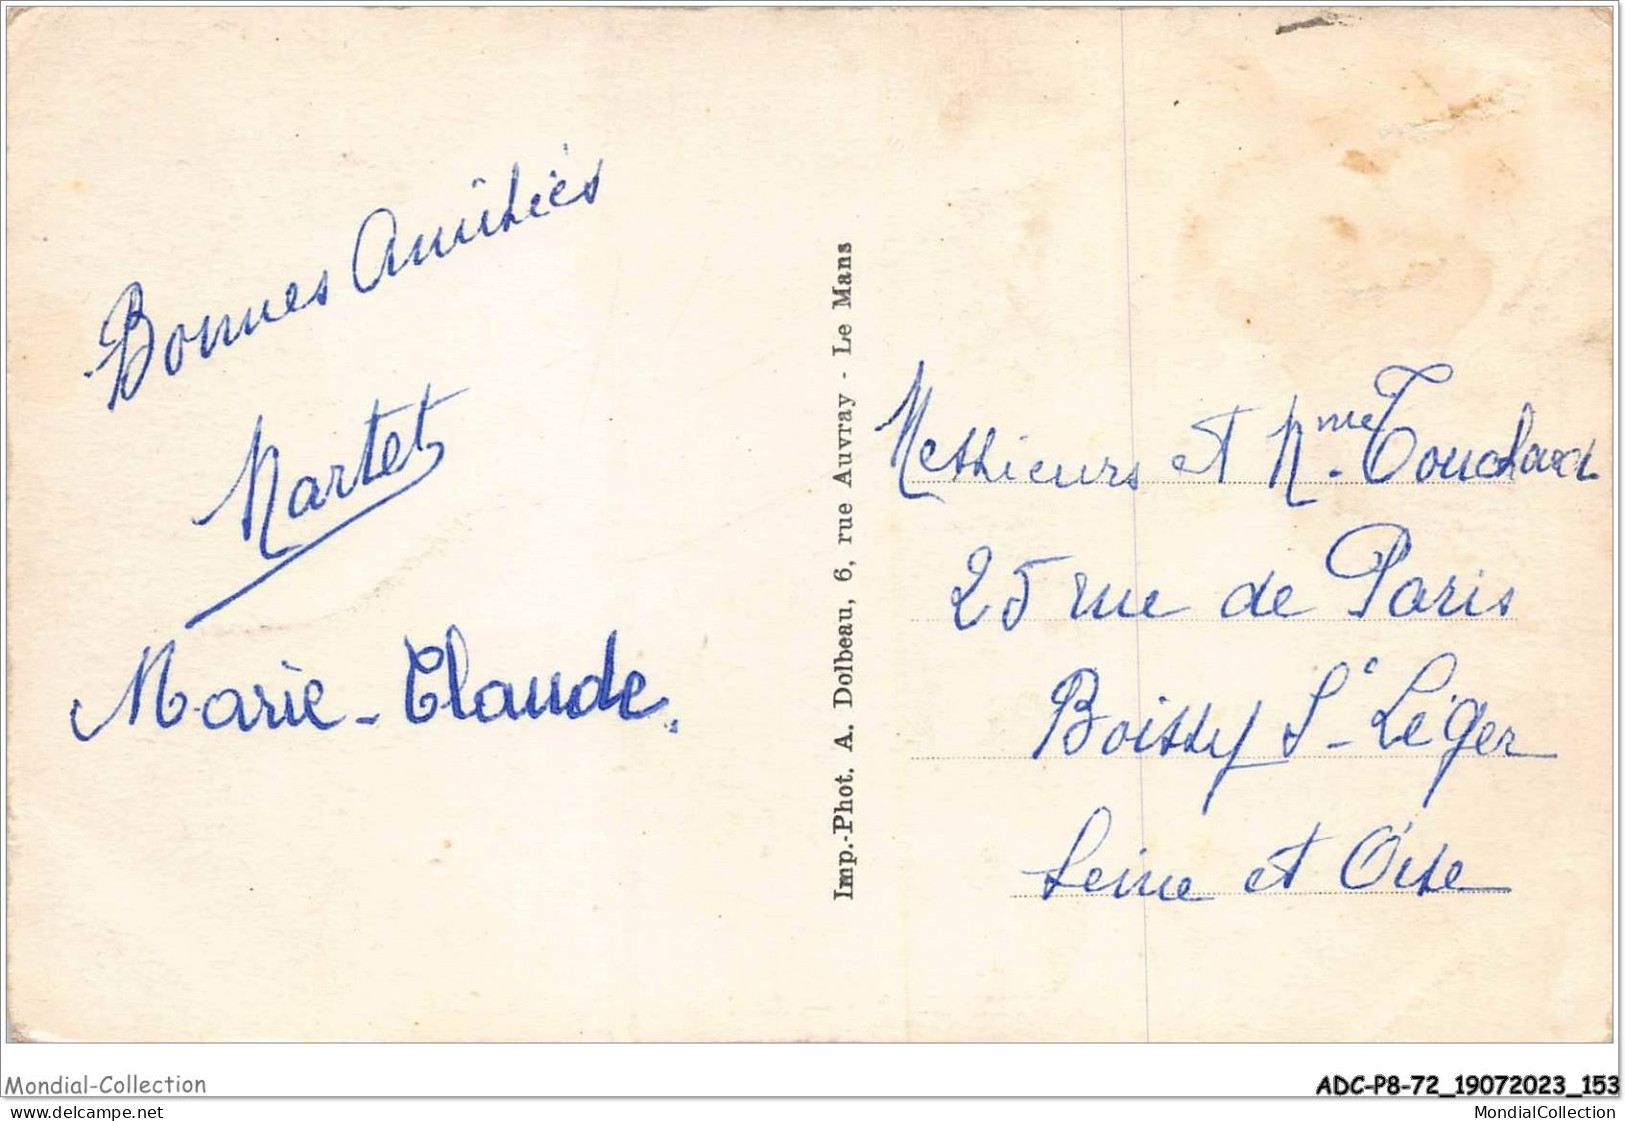 Bonnes Amitiés
Martet
Marie-Claude.
Imp.-Phot. A. Dolbeau, 6, rue Auvray - Le Mans
Messieurs et Mme Touchard
25 rue de Paris
Boissy St-Léger
Seine et Oise
Mondial-Collection
ADC-P8-72_19072023_153
www.delcampe.net
MondialCollection